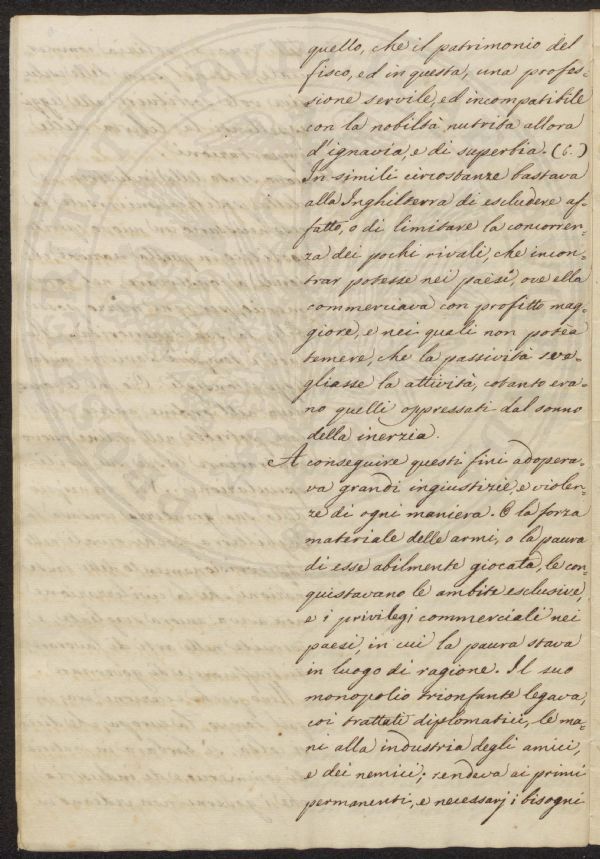 quello, che il patrimonio del
fisco, ed in questa, una profes-
sione servile, ed incompatibile
con la nobiltà nutrita allora
d'ignavia, e di superbia. (6.)
In simili circostanze bastava
alla Inghilterra di escludere af-
fatto, o di limitare la concorren-
za dei pochi rivali, che incon-
trar potesse nei paesi, ove ella
commerciava con profitto mag-
giore, e nei quali non potea
temere, che la passività sve-
gliasse la attività, cotanto era-
no quelli oppressati dal sonno
della inerzia.
A conseguire questi fini adopera-
va grandi ingiustizie, e violen-
ze di ogni maniera. O la forza
materiale delle armi, o la paura
di esse abilmente giocata, le con-
quistavano le ambite esclusive,
e i privilegj commerciali nei
paesi, in cui la paura stava
in luogo di ragione. Il suo
monopolio trionfante legava,
coi trattati diplomatici, le ma-
ni alla industria degli amici,
e dei nemici; rendeva ai primi
permanenti, e necessarj i bisogni